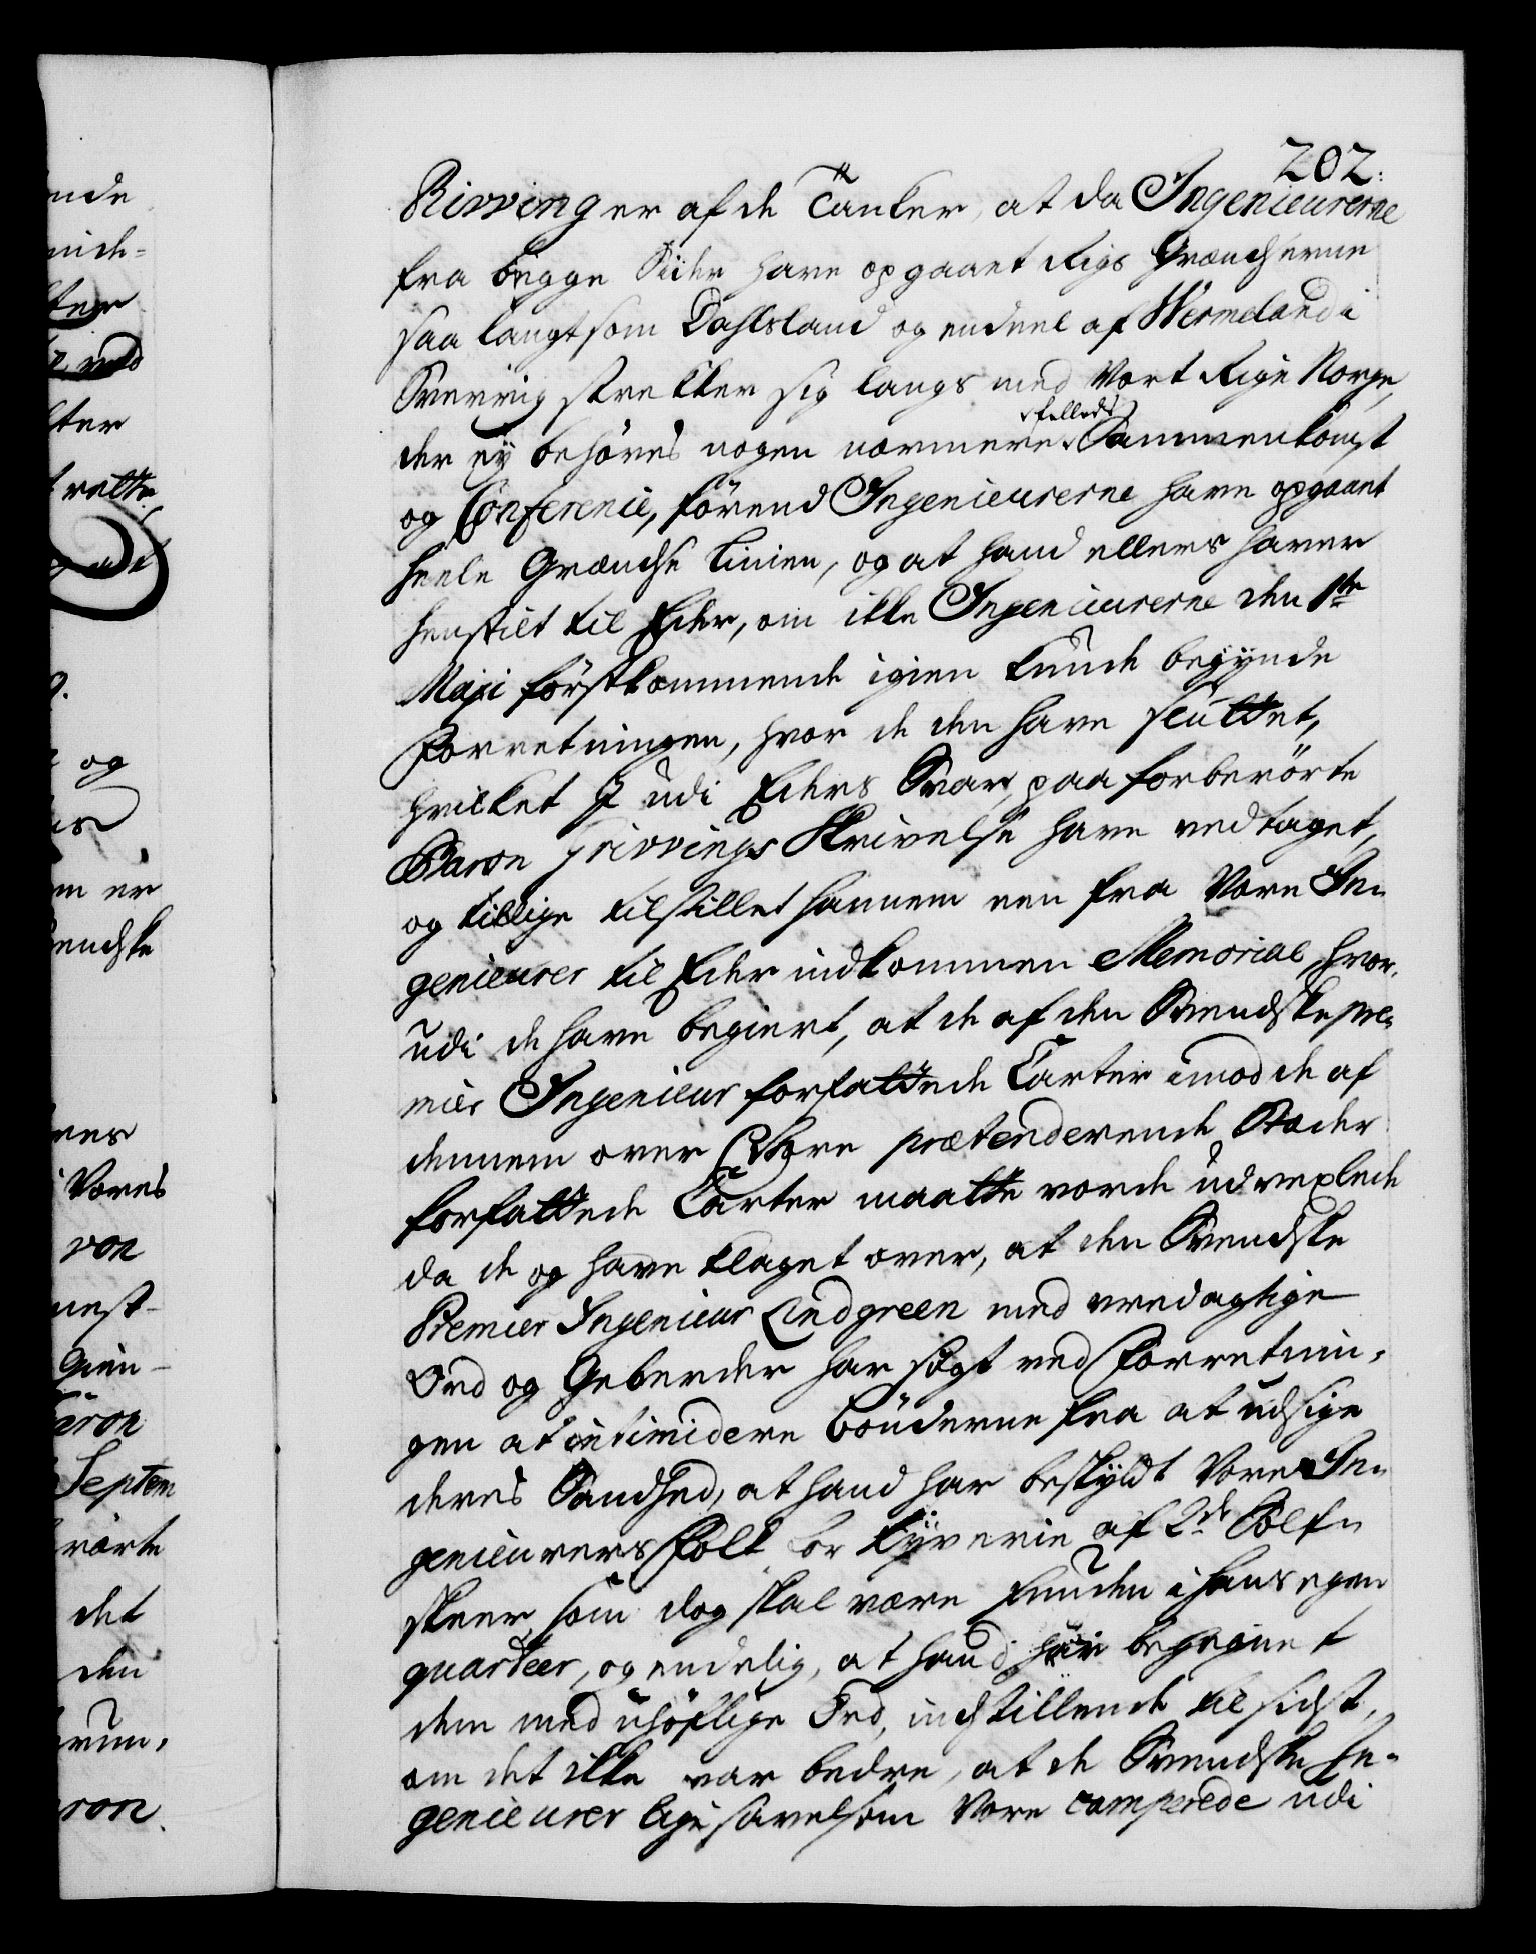 202.
Rivving er af de Tanker, at da Ingenieurerne
fra begge Siider have opgaaet Rigs Grændserne
saa langt som Dahlsland og endeel af Wermeland i
Sverrig strekker sig langs med Vort Rige Norge,
der ey behøves nogen nærmere fælleds Sammenkomst
og Conference, førend Ingenieurerne have opgaaet
heele Grændse Linien, og at hand ellers haver
henstilt til Eder, om ikke Ingenieurerne den 1ste
Maji førstkommende igien kunde begynde
Forretningen, hvor de den have sluttet,
hvilket I udi Eders Svar paa forberørte
Baron Rivvings Skrivelse have vedtaget,
og tillige tilstillet hannem een fra Vore In-
genieurer til Eder indkommen Memorial, hvor-
udi de have begiert, at de af den Svendske pre-
mier Ingenieur forfattede Carter imod de af
dennem over Vore prætenderende Stæder
forfattede Carter maatte vorde udvexlede
da de og have klaget over, at den Svendske
Premier Ingenieur Lindgreen med vredagtige
Ord og Geberder har søgt ved Forretnin-
gen at intimidere bønderne fra at udsige
deres Sandhed, at hand har beskyldt Vore In-
genieurers Folk for tyverie af 2de Sølf-
skeer, som dog skal være funden i hans egen
quarteer, og endelig, at hand har begegnet
dem med uhøflige Ord, indstillende til sidst,
om det ikke var bedre, at de Svendske In-
genieurer lige saavelsom Vore camperede udi
nde
ter
ved
ter
rette
og
m er
endske
Vores
von
nest-
Septem
rørte
det
den
ron.